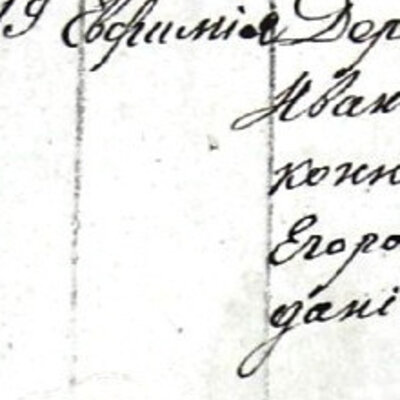 19 Евфимія Дер
Иван
конн
Егоро
дані